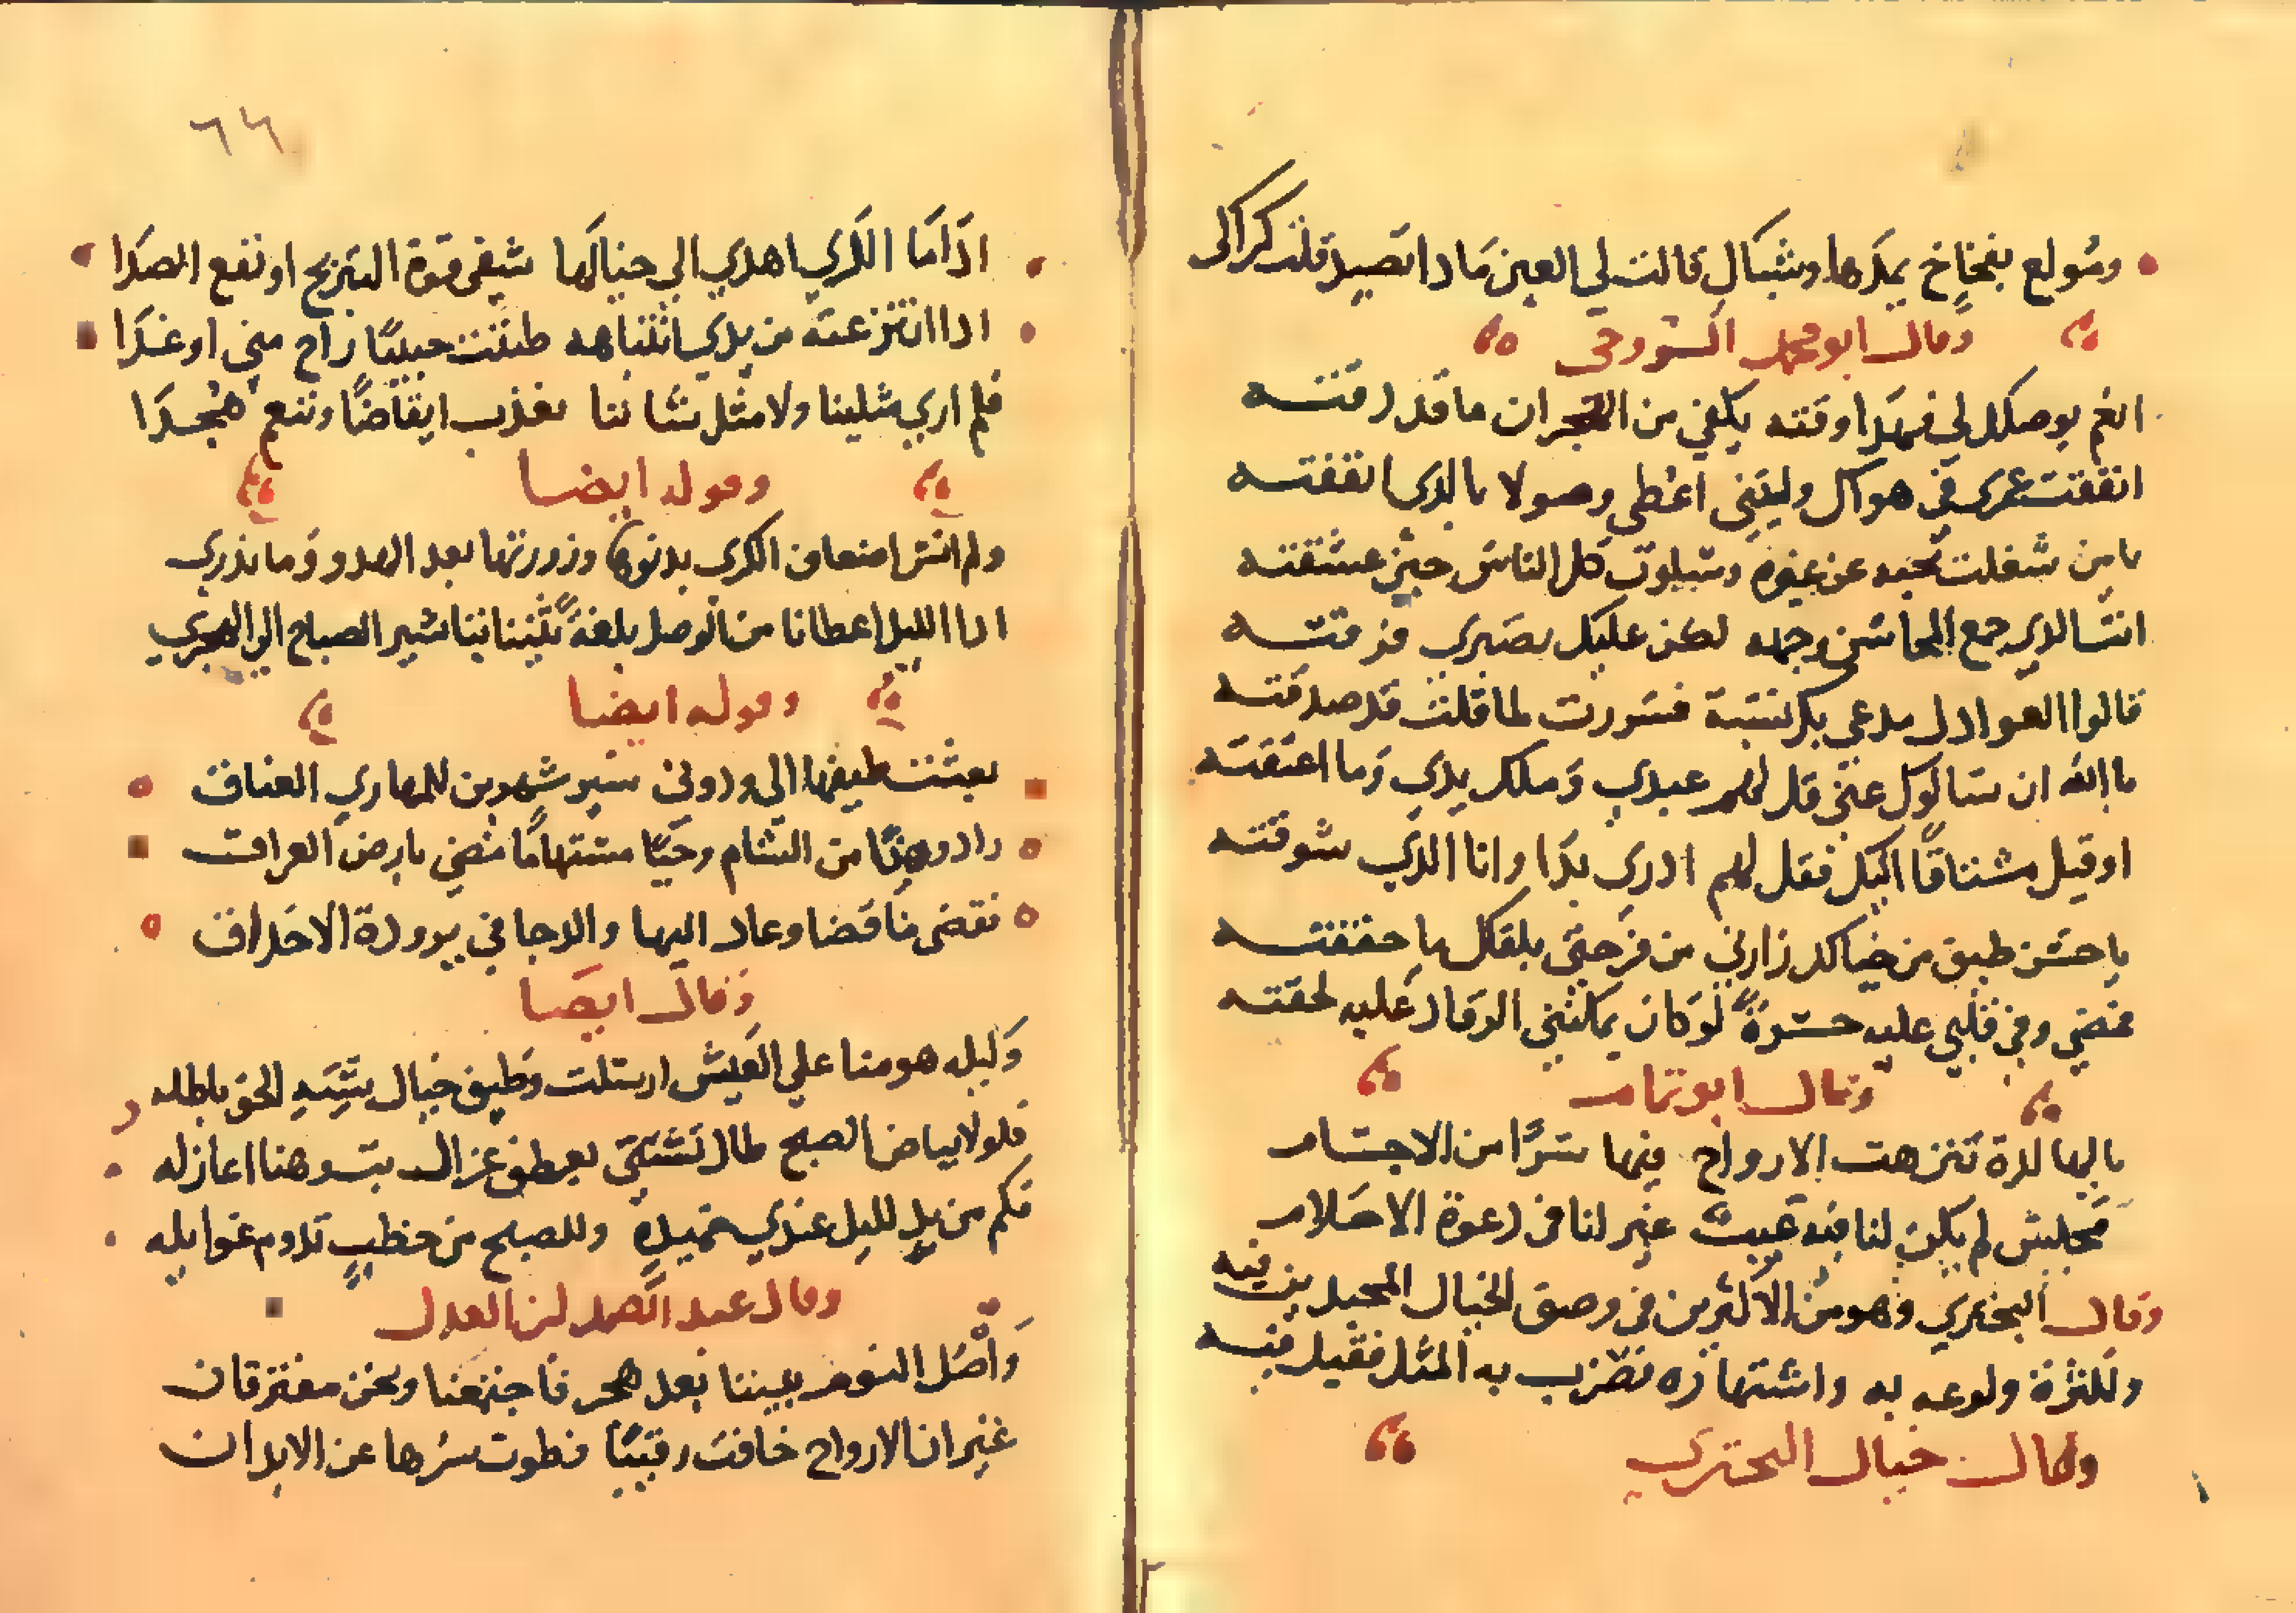 ومولع بفخاخ يمدها وشباك قالت لي العين ماذا تصيد قلت كراكي
وقال ابو محمد السروجي
انعم بوصلك لي فهذا وقته يكفي من الهجران ما قد ذقته
انفقت عمري في هواك وليتني اعطي وصولا بالذي انفقته
يا من شغلت بحبه عن غيره وسلوت كل الناس حين عشقته
انت الذي جمع المحاسن وجهه لكن عليك تصبري فرقته
قالوا العوادل مدعي بك نسبة فسررت لما قلت قد صدقته
بالله ان سالوك عني قل لهم عبدي وملك يدي وما اعتقته
او قيل مشتاقا اليك فقل لهم ادري بذا وانا الذي شوقته
يا حسن طيف من خيالك زارني من فرحتي بلقاك ما حققته
فمضي وفي قلبي عليه حسرة لو كان يمكنني الرقاد عليه لحقته
وقال ابو تمام
يا لها لذة تنزهت الارواح فيها سرا من الاجسام
مجلس لم يكن لنا فيه عيب غير انا في دعوة الاحلام
وقال البحتري وهو من الاكثرين في وصف الخيال المجيدين فيه
وللثرة ولوعه به واشتهاره تضرب به المثل فقيل فيه
وقال خيال البحتري
٦٦
اذا ما الكري اهدي الي خيالها شفى قوة التبريح او نقع الصدا
اذا انتزعته من يدي انتباهه ظننت حبيبا راح مني او غدا
فلم اري مثلينا ولا مثل شاننا نعذب ايقاضا وننعم هجدا
وقوله ايضا
ولم انس امنعاف الكري بدنوها وزورتها بعد الهدو وما تدري
اذا الليل اعطانا من الوصل بلغة ثنينا تباشير الصباح الي الهجري
وقوله ايضا
بعثت طيفها الي ودوني سير شهرين للمهاري العتاق
زار وهنا من الشام وحيا مستهاما مضي بارض العراق
فقضى ما قضا وعاد اليها والدجا في برودة الاخلاق
وقال ايضا
وليله هومنا علي العيش ارسلت وطيف خيال يشبه الحق باطله
فلولا بياض الصبح طال تشبثي بعطف غزال بت وهنا اغازله
فكم من يد لليل عندي حميدة وللصبح من خطب تذوم غوايله
وقال عبد الصمد بن العدل
واصل النوم بيننا بعد هجر فاجتمعنا ونحن مفترقان
غير ان الارواح خافت رقيبا فطوت سرها عن الابدان